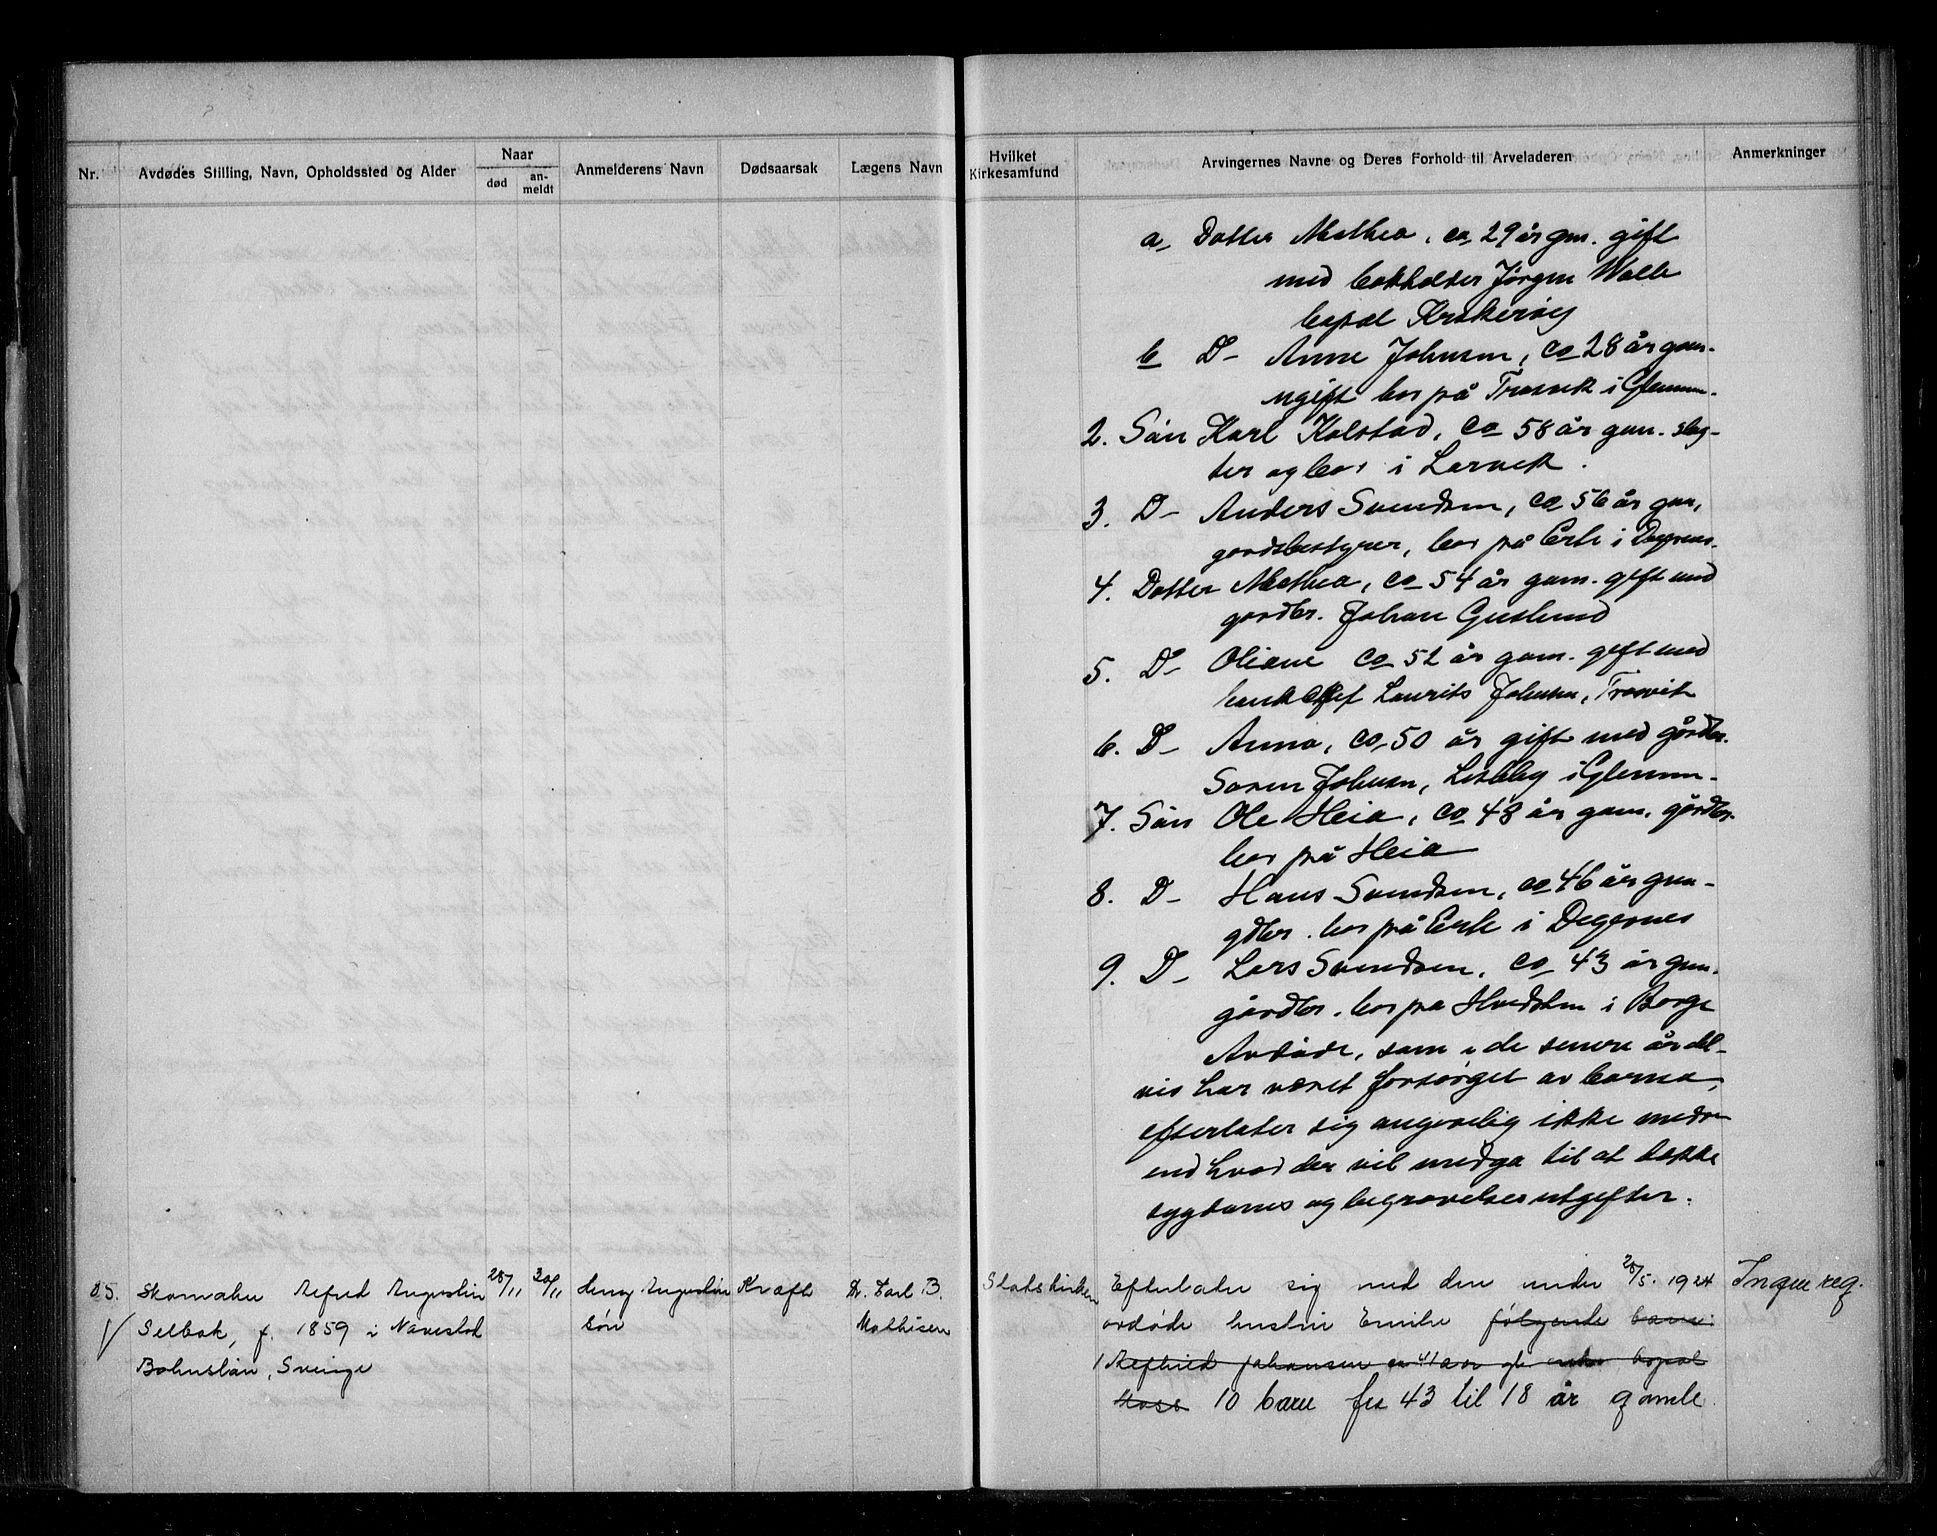 Nr.
Avdødes Stilling, Navn, Opholdssted og Alder
Naar
død
an-
meldt
Anmelderens Navn
Dødsaarsak
Lægens Navn
Hvilket
Kirkesamfund
Arvingernes Navne og Deres Forhold til Arveladeren
Anmerkninger
a, Datter Mathea, ca 29 år gm. gift
med bokholder Jörgen Walle
bopæl Krakeröy
b D- Anne Johnsen, ca 28 år gam.
ugift bor på Trosvik i Glemm.
2. Sön Karl Kolstad, ca 58 år gam. slag-
ter og bor i Larvik.
3. D- Anders Svendsen, ca 56 år gam,
gårdsbestyrer, bor på Erte i Degernes.
4. Datter Mathea, ca 54 år gam. gift med
gårdbr. Johan Gislund
5. D- Oliane ca 52 år gam. gift med
Laurits Johnsen, Trosvik
6. D- Anna, ca 50 år gift med gårdbr.
Soren Johnsen, Lisleby i Glemm-
7. Sön Ole Heia, ca 48 år gam. gårdbr.
bor på Heia
8. D- Hans Svendsen, ca 46 år gam-
gdbr. bor på Erte i Degernes
9. D- Lars Svendsen, ca 43 år gam.
gårdbr. bor på Hvidsten i Borge
Avdöde, som i de senere år del-
vis har været forsörget av barna,
efterlater sig angivelig ikke mere
end hvad der vil medgå til at dække
sygdoms og begravelsesutgifter.
85. Skomaker Alfred Augustin 28/11 30/11 Henry Augustin Kræft Dr. Carl B. Statskirken Efterlater sig med den under 28/5. 1924 Ingen reg.
Selbak, f. 1859 i Navestad sön Mathisen avdøde hustru Emilie følgende barn:
Bohuslän, Sverige 1 Alfhild Johansen ca 41 aar gl. enke bopæl
Moss 10 barn fra 43 til 18 år gamle.